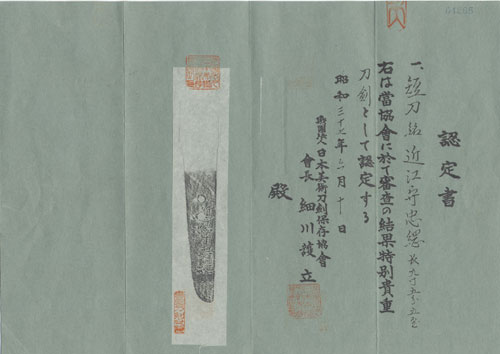 認定書
一、短刀 銘 近江守忠綱 長九寸五分五厘
右は當協會に於て審査の結果特別貴重
刀劍として認定する
昭和三十 年 月十日
財團法人日本美術刀劍保存協會
會長 細川護立
殿